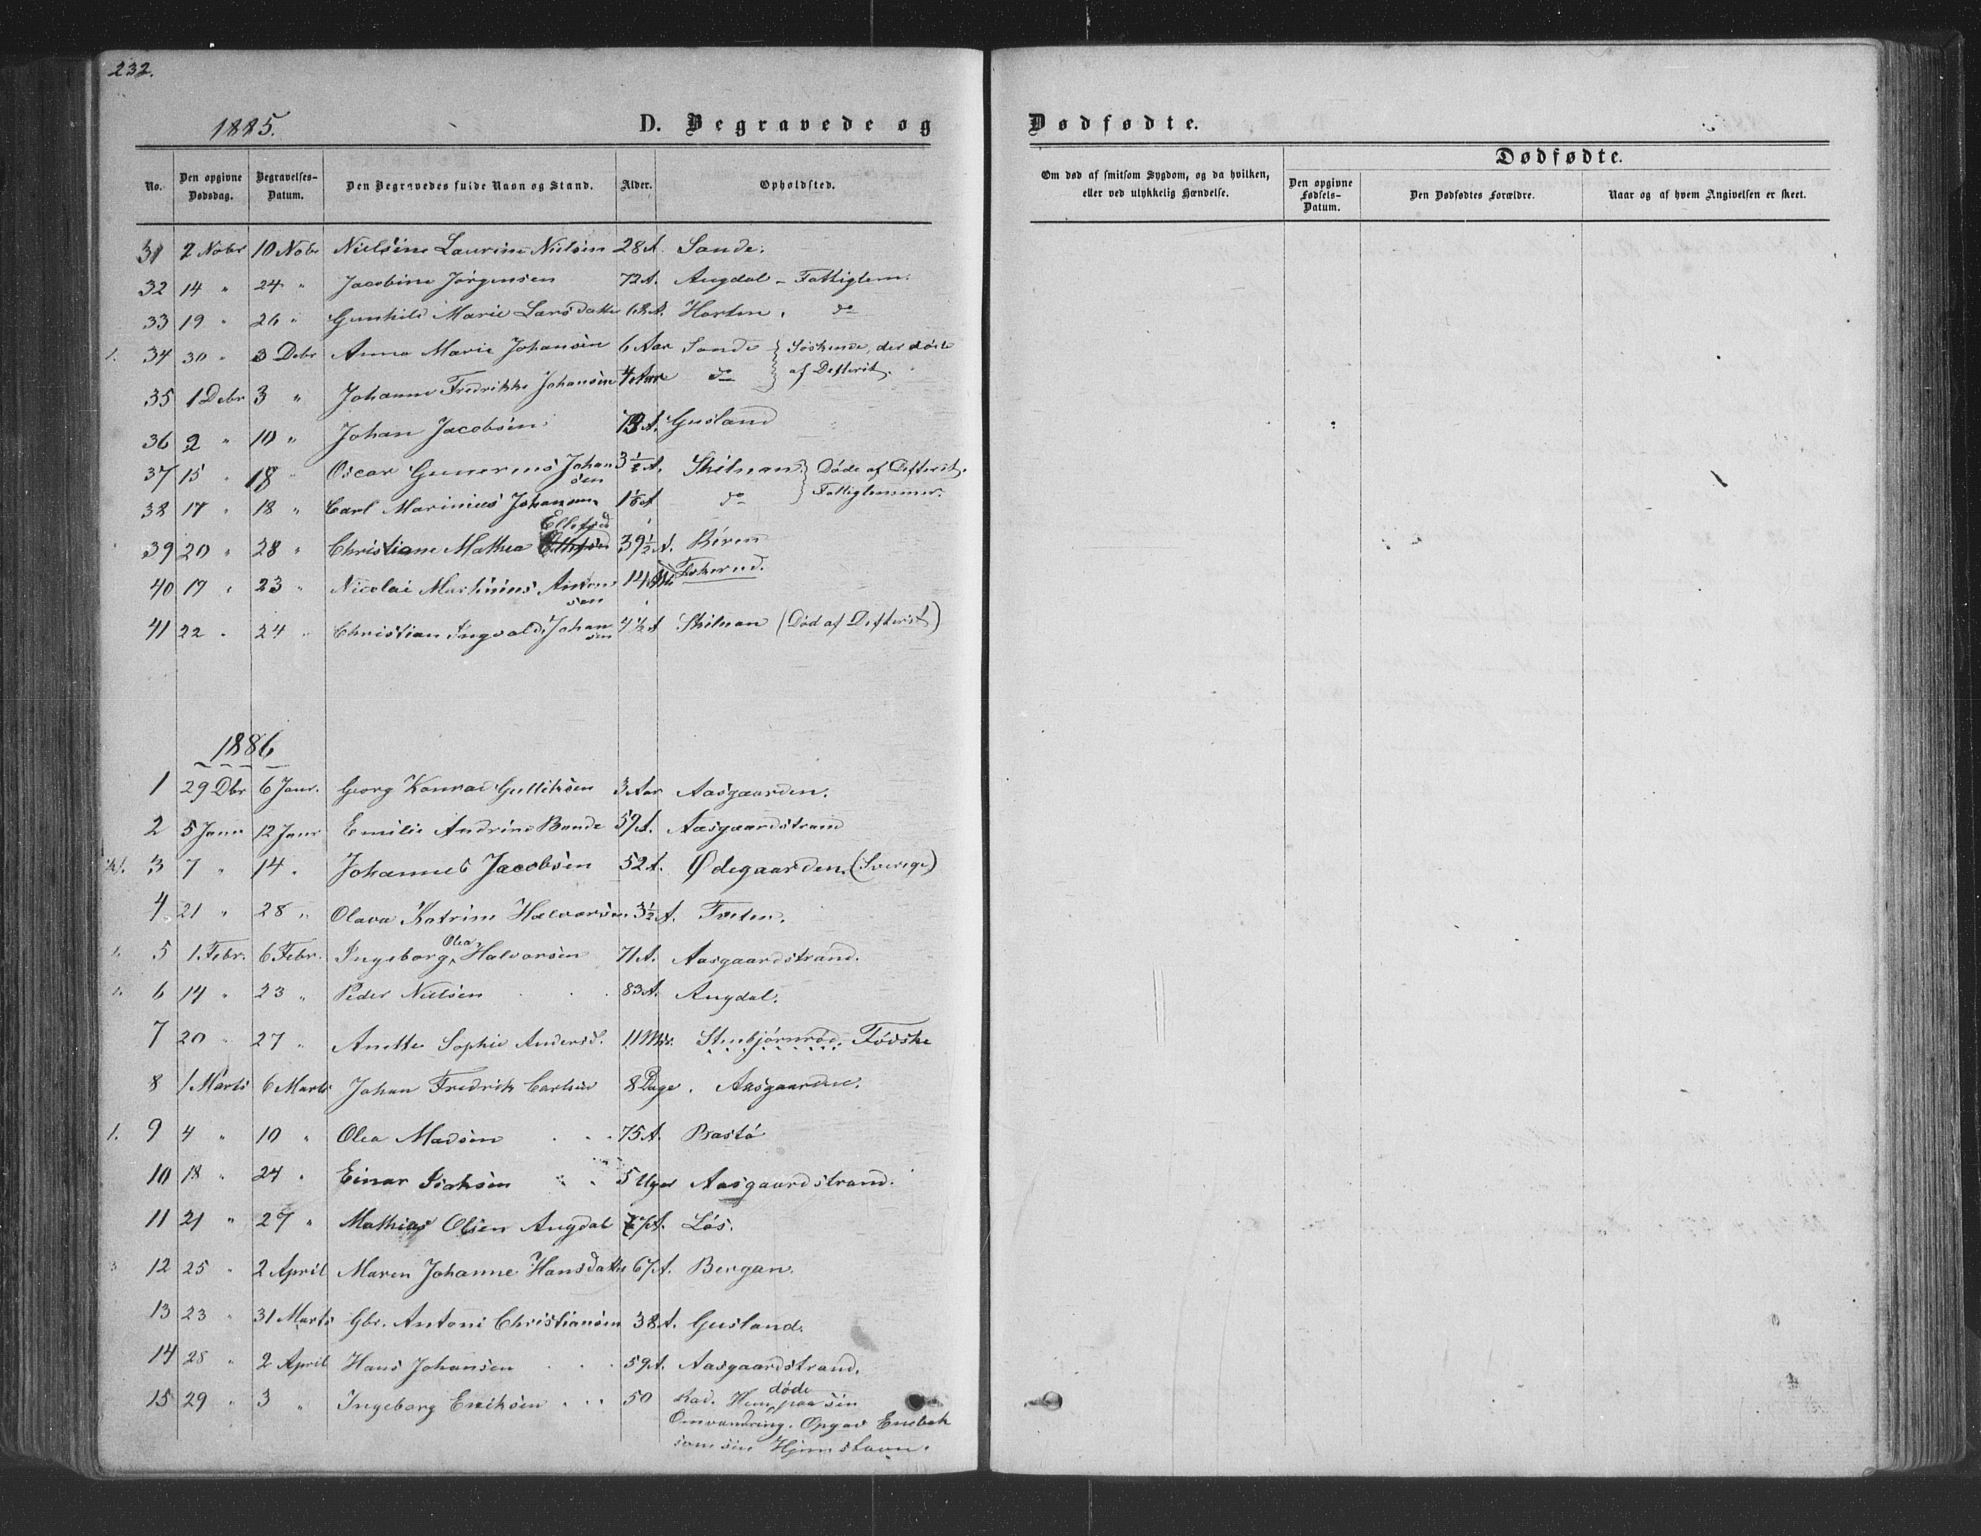 232.
1885.
D. Begravede og
Dødfødte.
No.
Den opgivne Dødsdag.
Begravelses-Datum.
Den Begravedes fulde Navn og Stand.
Alder.
Opholdsted.
Om død af smitsom Sygdom, og da hvilken, eller ved ulykkelig Hændelse.
Dødfødte.
Den opgivne Fødsels-Datum.
Den Dødfødtes Forældre.
Naar og af hvem Angivelsen er skeet.
31 2 Nobr 10 Nobr Nielsine Laurine Nielsen 28 A. Sande.
32 14 " 24 " Jacobine Jørgensen 72 A. Augdal - Fattiglem.
33 19 " 26 " Gunhild Marie Larsdatter A. Horten. do
1. 34 30 " 3 Debr Anna Marie Johansen 6 Aar Sande } Søskende, der døde
35 1 Debr 3 " Johanne Fredrikke Johansen 4 Aar do } af Defterit.
36 2 " 10 " Johan Jacobsen A. Gusland
37 15 " 18 " Oscar Gunerius Johansen 3½ A. Skilnan } Døde af Defterit.
38 17 " 18 " Carl Marinius Johansen do } Fattiglemmer.
39 20 " 28 " Christiane Mathea Ellefsen 39½ A. Røren
40 17 " 23 " Nicolai Martinius Antonsen 14 Foskerud.
41 22 " 24 " Christian Ingvald Johansen 4½ A Skilnan (Død af Defterit)
1886
1 29 Dbr 6 Janr. Georg Konrad Gulliksen 3 Aar Aasgaarden.
2 5 Janr 12 Janr Emilie Andrine Bonde 59 A. Aasgaardstrand
3 7 " 14 " Johannes Jacobsen 52 A. Ødegaarden. (Sverige)
4 21 " 28 " Olava Katrine Halvorsen 3½ A. Tveten.
1. 5 1. Febr. 6 Febr. Ingeborg Olea Halvorsen 71 A. Aasgaardstrand.
1. 6 14 " 23 " Peder Nielsen 83 A. Augdal.
7 20 " 27 " Anette Sophie Andersd. 11 Mdr. Stenbjørnrød, Tødske
8 1 Marts 6 Marts Johan Fredrik Carlsen 8 Dage. Aasgaarden.
1. 9 4 " 10 " Olea Madsen 75 A. Bastø
10 18 " 24 " Einar Isaksen 5 Uger Aasgaardstrand.
11 21 " 27 " Mathias Olsen Augdal A. Løs.
12 25 " 2 April Maren Johanne Hansdatter 67 A. Bergan.
13 23 " 31 Marts Gbr. Antoni Christiansen 38 A. Gusland.
14 28 " 2 April Hans Johansen 59 A. Aasgaardstrand.
15 29 " 3 " Ingeborg Eriksen 50 Rad. Hun døde paa sin
Omvandring. Opgav Enebak
som sin Hjemstavn.